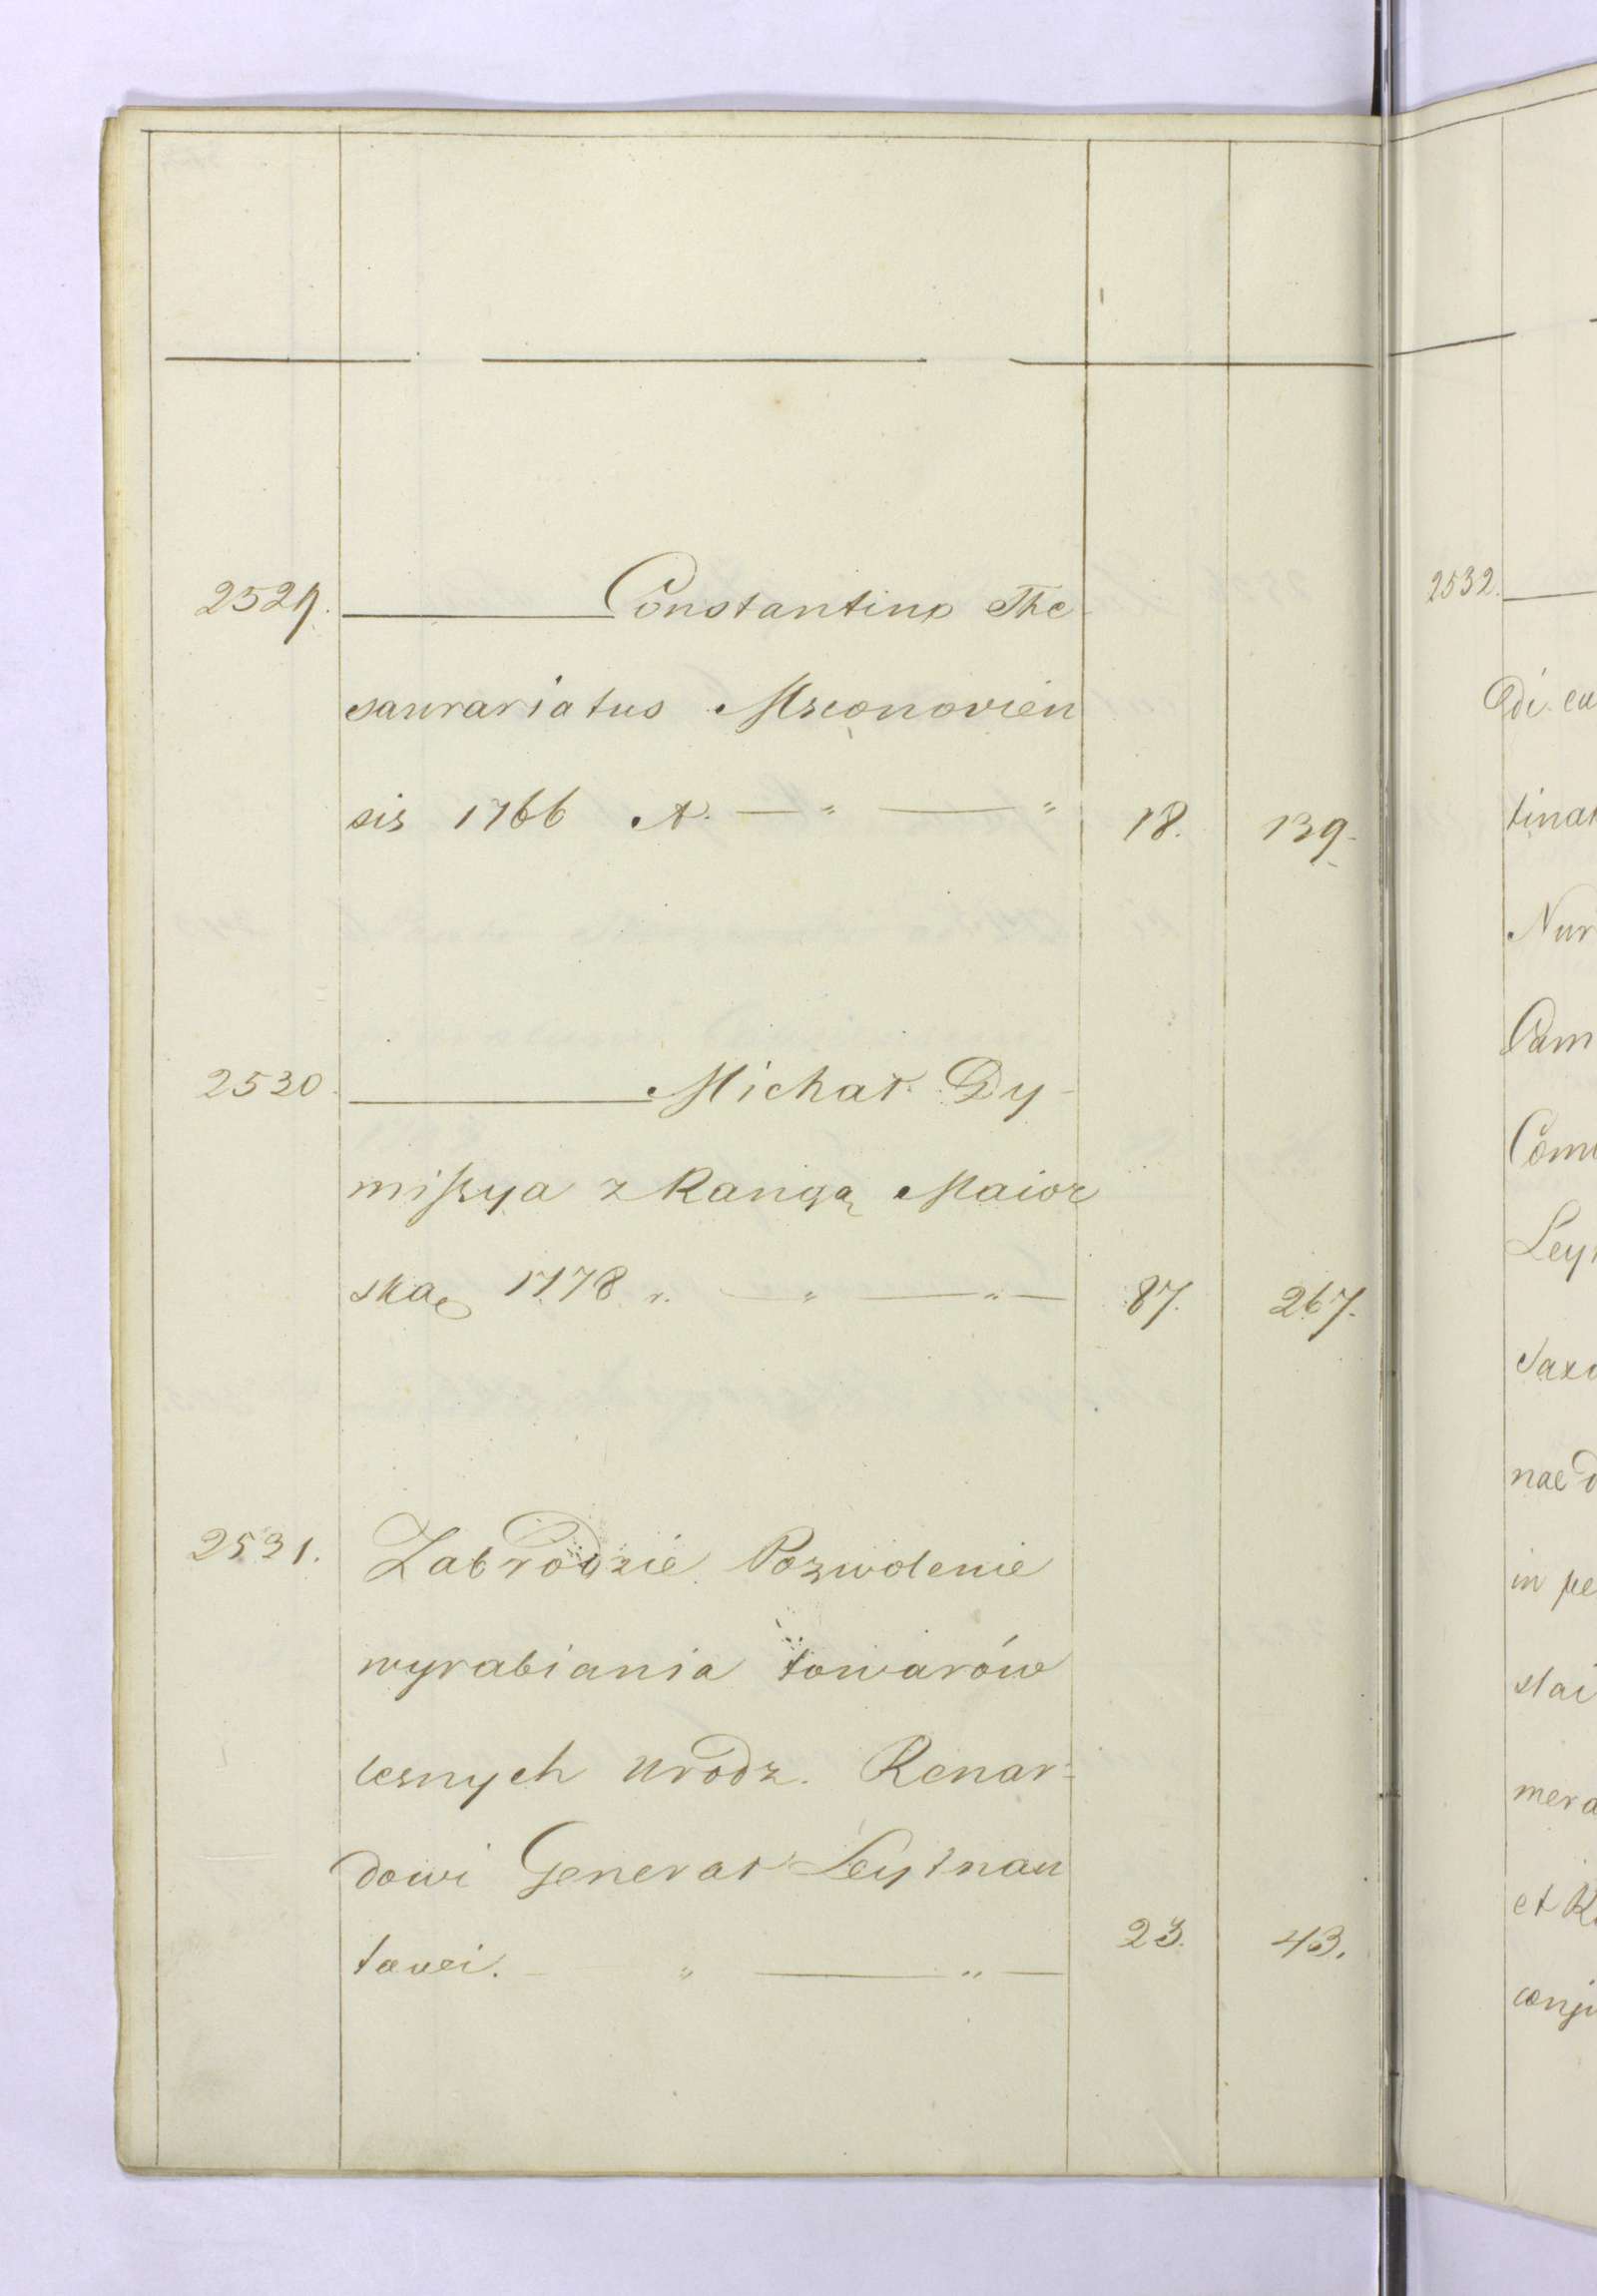 2529. ——— Constantino The
saurariatus Msconovien
sis 1766 A. — " — " 18. 139.
2530. ——— Michał Dy-
missya z Rangą Maior
ską 1778 r. — " — " — 87. 267.
2531. Zabrodzie Pozwolenie
wyrabiania towarów
lesnych urodz. Renar=
dowi Generał Leytnan
towi. — " — " — 23. 43.
2532. —
tinat
Nur
Cam
Leyt
Saxo
nae d
in pe
stai
mera
et R
conju